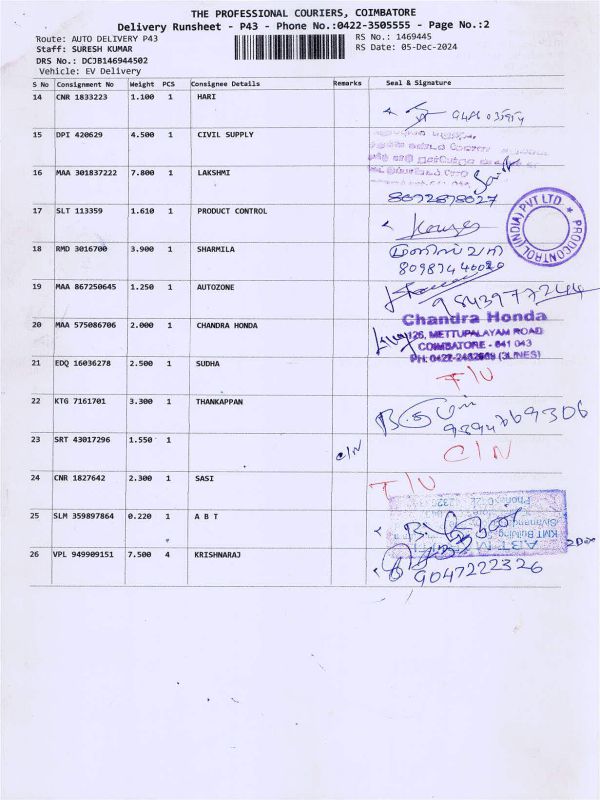 THE PROFESSIONAL COURIERS, COIMBATORE
Delivery Runsheet - P43 - Phone No.:0422-3505555 - Page No.:2
Route: AUTO DELIVERY P43 RS No.: 1469445
Staff: SURESH KUMAR RS Date: 05-Dec-2024
DRS No.: DCJB146944502
Vehicle: EV Delivery
S No Consignment No Weight PCS Consignee Details Remarks Seal & Signature
14 CNR 1833223 1.100 1 HARI
15 DPI 420629 4.500 1 CIVIL SUPPLY
16 MAA 301837222 7.800 1 LAKSHMI
8072878027
17 SLT 113359 1.610 1 PRODUCT CONTROL
PRODCONTROL (INDIA) PVT LTD. *
18 RMD 3016700 3.900 1 SHARMILA
19 MAA 867250645 1.250 1 AUTOZONE
9843977244
20 MAA 575086706 2.000 1 CHANDRA HONDA
Chandra Honda
126, METTUPALAYAM ROAD
COIMBATORE - 641 043
PH: 0422-2432669 (3LINES)
21 EDQ 16036278 2.500 1 SUDHA
F/U
22 KTG 7161701 3.300 1 THANKAPPAN
9894769306
23 SRT 43017296 1.550 1 C/N
C/N
24 CNR 1827642 2.300 1 SASI
T/U
25 SLM 359897864 0.220 1 A B T
KMT Building
26 VPL 949909151 7.500 4 KRISHNARAJ
9047222326